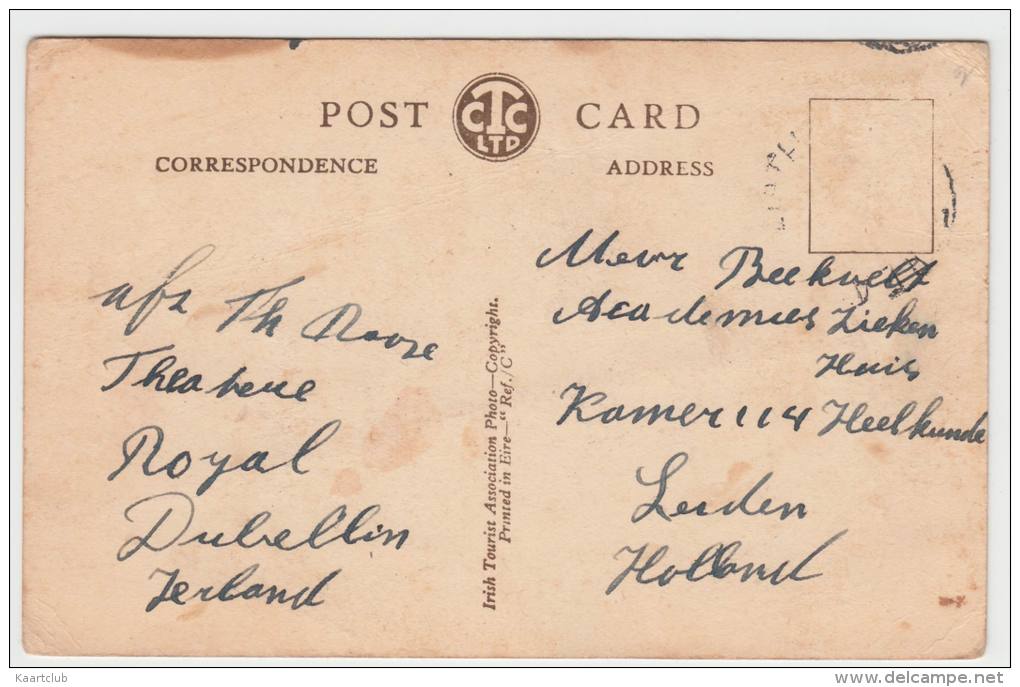 POST CTC LTD CARD
CORRESPONDENCE ADDRESS
afz Th
Theatere
Royal
Dubellin
Ierland
Irish Tourist Association Photo—Copyright.
Printed in Eire—"Ref./C"
Mevr Beekvelt
Academies Zieken
Huis
Kamer 114 Heelkunde
Leiden
Holland
Kaartclub
delcampe.net